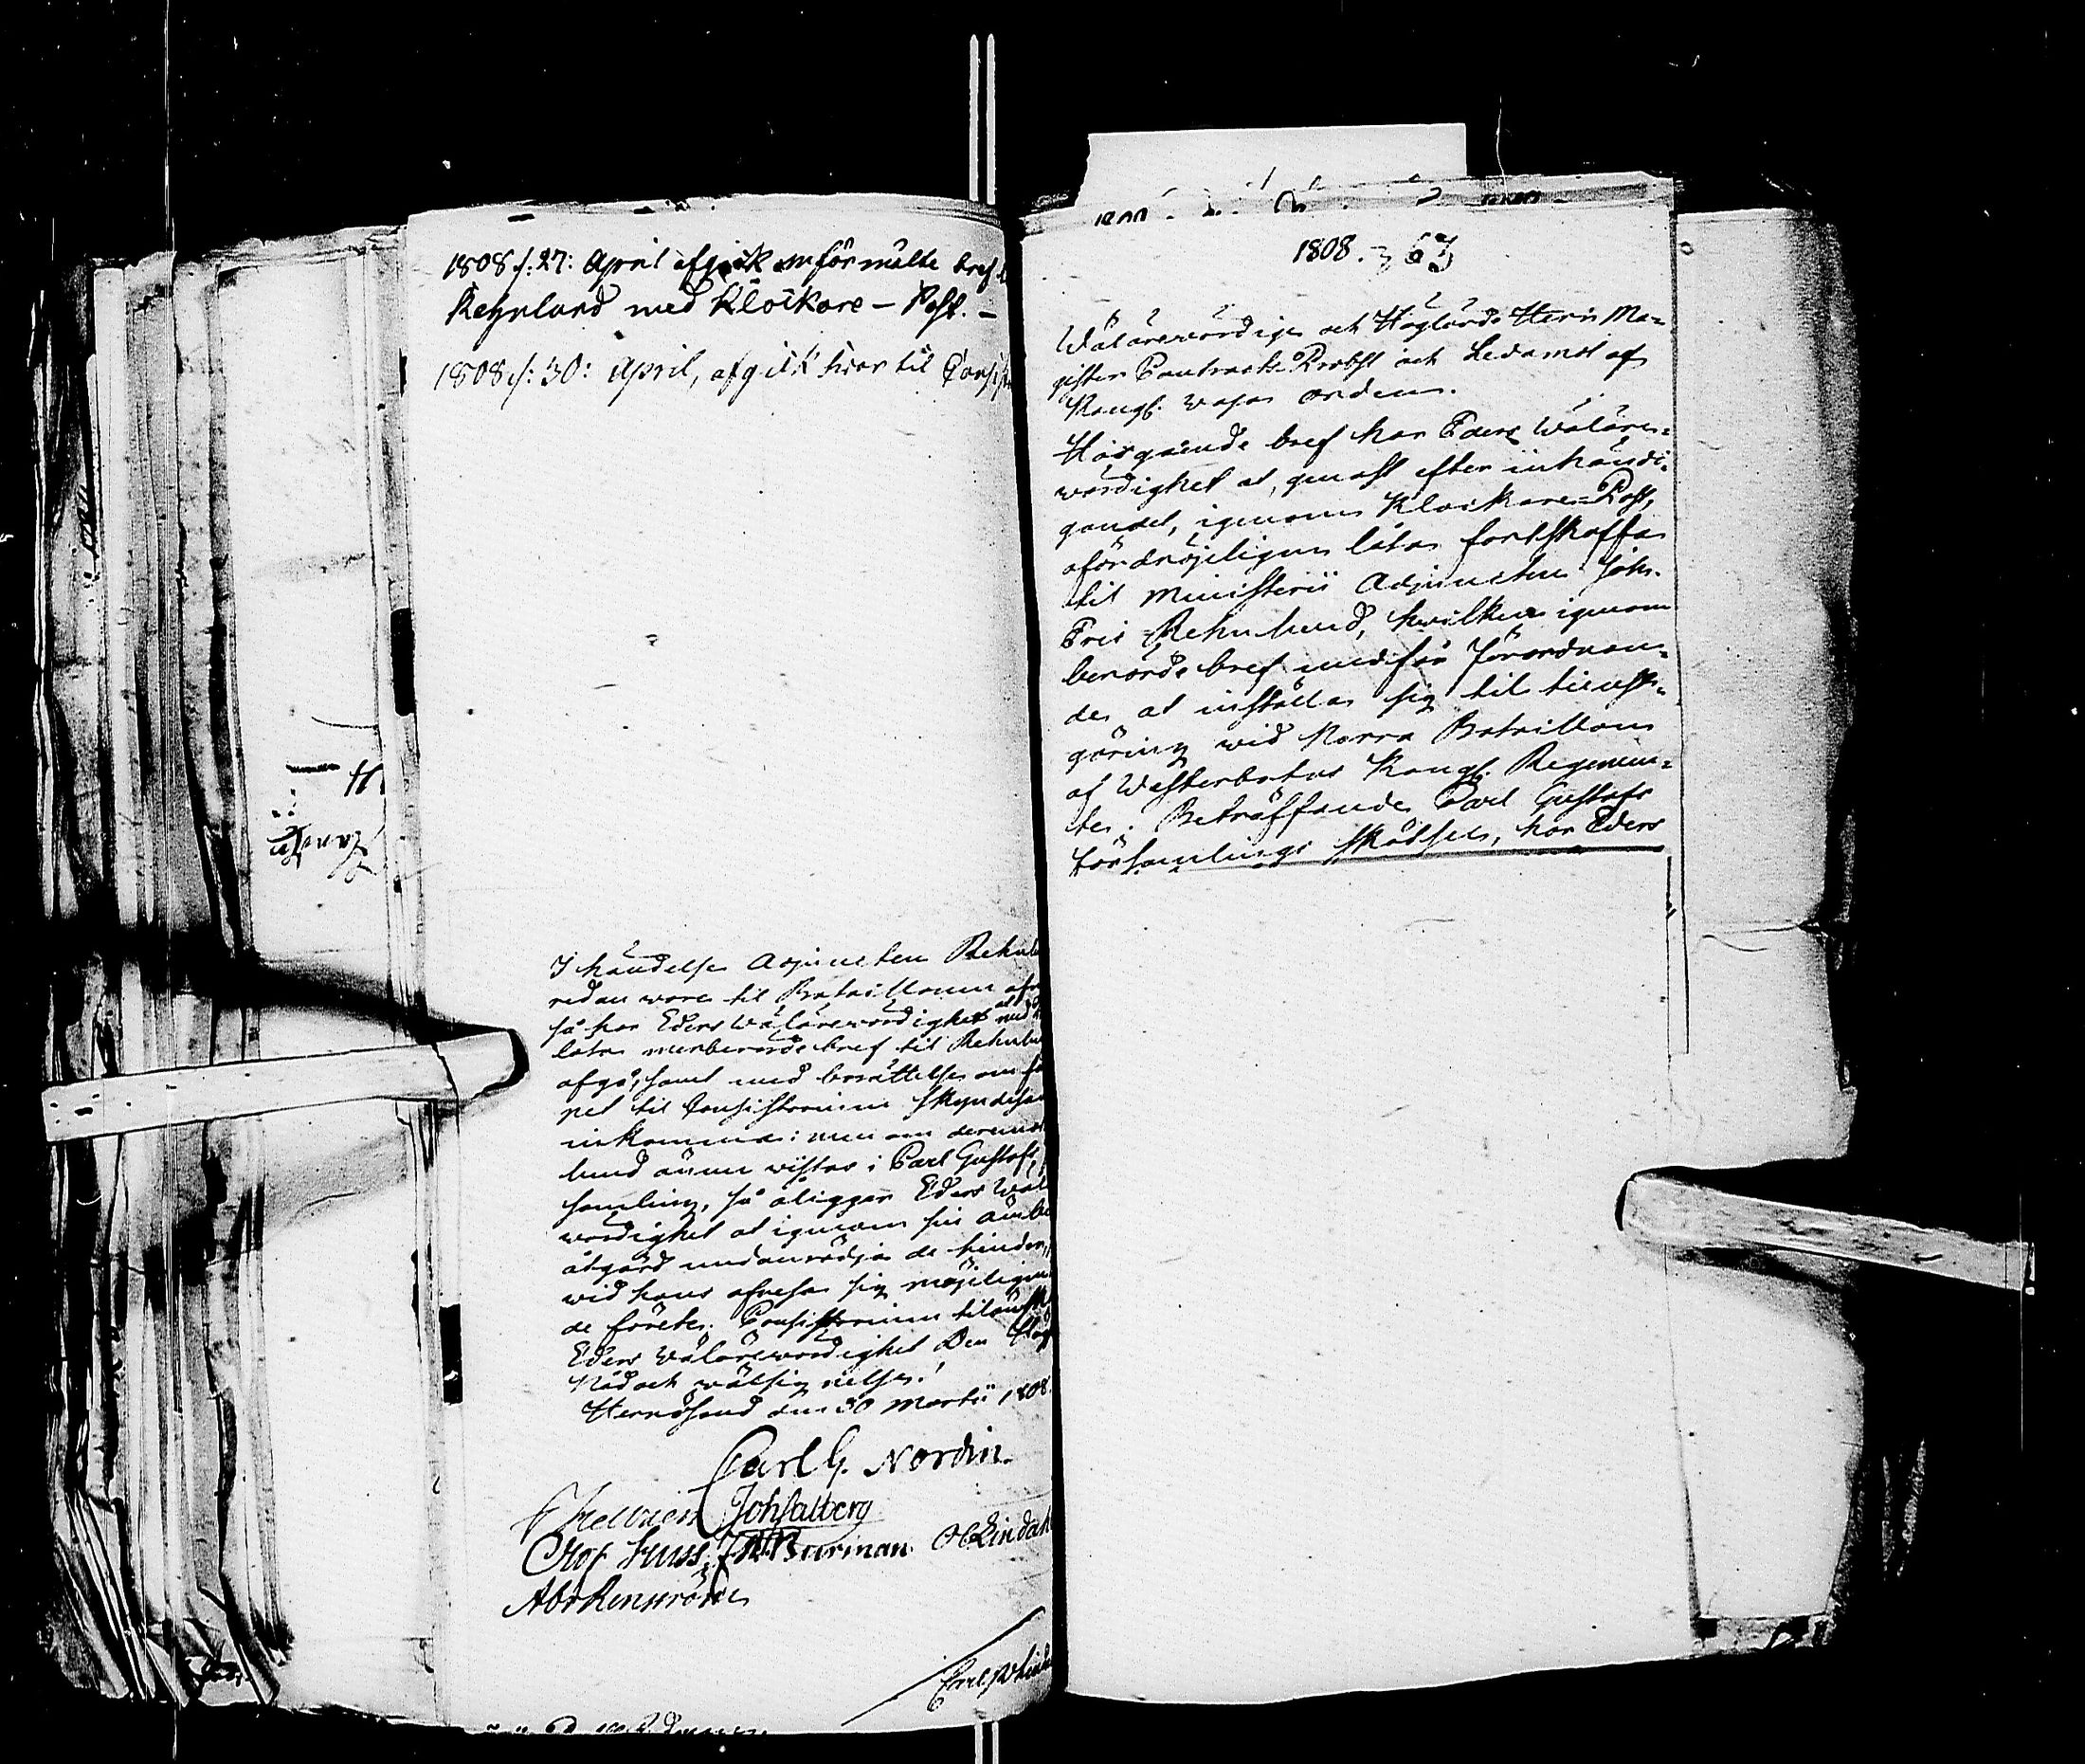 1808 d: 27: April afgick omförmälte bref
Rehnlund med Klockare-Post. -
1808 d: 30: April, afgick svar til Consist
I händelse Adjuncten Rehnl
redan vore til Bataillonen afr
så har Eders Wälärewördighet at med
låta merberörde bref til Rehnlu
afgå, samt med berättelse om
til Consistorium skyndesam
inkomma: men om deremot
lund ännu vistas i Carl Gustafs
samling, så åligger Eders Wäl
wördighet at igenom sin ämbe
åtgärd undanrödja de hinder,
wid hans afresa sig möjeligen
de förete. Consistorium tilönsk
Eders Wälärewördighet Den Hög
Nåd och wälsignelse!
Hernösand den 30 Martii 1808.
Carl G. Nordin
Joh Salberg
Olof Huss. Burman. Lindahl
Carl
1808. 63
Wälärewördige och Höglärde Herr Ma=
gister Contracts Probst och Ledamot af
Kongl. Wasa orden.
Härgående bref har Eders Wäläre=
wördighet at, genast efter inhändi=
gandet, igenom Klockare=Post,
ofördröjeligen låta fortskaffa
til Ministerii Adjuncten Joh.
Eric Rehnlund, hvilken igenom
berörde bref undfår förordnan=
de at inställa sig til tienst=
göring wid Norra Bataillon
af Westerbottns Kongl. Regemen=
te. Beträffande Carl Gustafs
församlings skötsel, har Eders